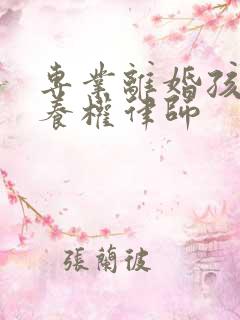 專業離婚孩
養權律師
張蘭彼